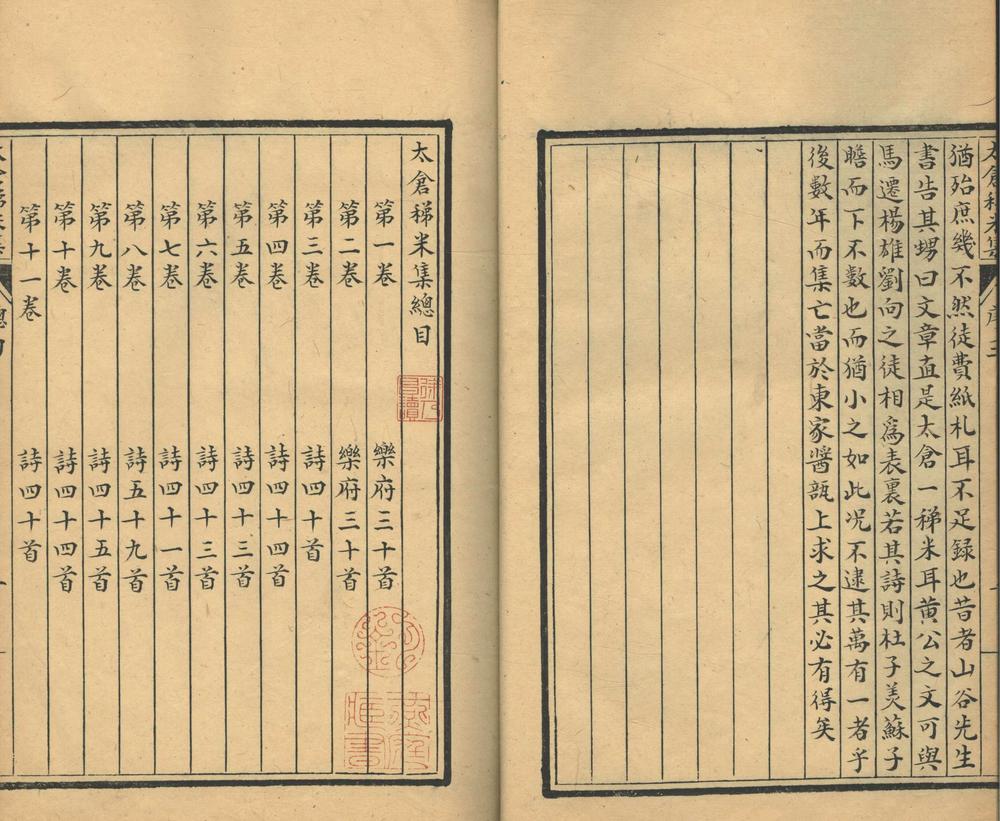 猶殆庶幾不然徒費紙札耳不足録也昔者山谷先生
書告其甥曰文章直是太倉一稊米耳黄公之文可與
馬遷楊雄劉向之徒相爲表裏若其詩則杜子美蘇子
瞻而下不數也而猶小之如此况不逮其萬有一者乎
後數年而集亡當於東家醬瓿上求之其必有得矣
太倉稊米集總目
第一卷 樂府三十首
第二卷 樂府三十首
第三卷 詩四十首
第四卷 詩四十四首
第五卷 詩四十三首
第六卷 詩四十三首
第七卷 詩四十一首
第八卷 詩五十九首
第九卷 詩四十五首
第十卷 詩四十四首
第十一卷 詩四十首